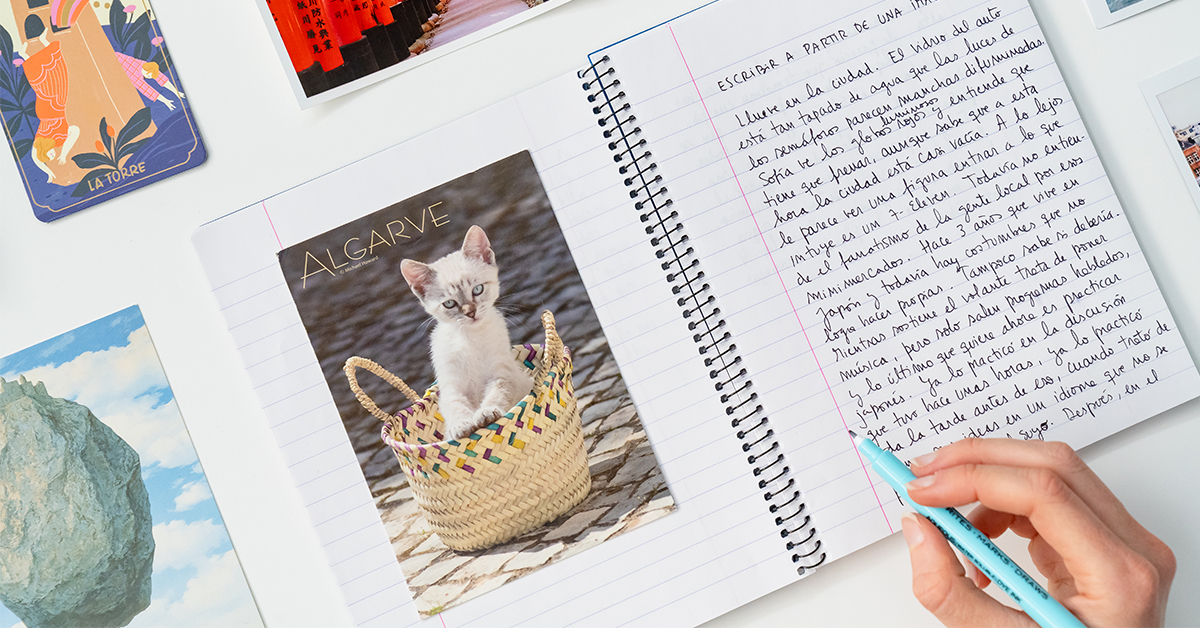 LA TORRE
ALGARVE
© Michael Howard
ESCRIBIR A PARTIR DE UNA
Llueve en la ciudad. El vidrio del auto
está tan tapado de agua que las luces de
los semáforos parecen manchas difuminadas.
Sofía ve los globos rojos luminosos y entiende que
tiene que frenar, aunque sabe que a esta
hora la ciudad está casi vacía. A lo lejos
le parece ver una figura entrar a lo que
intuye es un 7-Eleven. Todavía no entien-
de el fanatismo de la gente local por esos
minimercados. Hace 3 años que vive en
Japón y todavía hay costumbres que no
logra hacer propias. Tampoco sabe si debería.
Mientras sostiene el volante trata de poner
música, pero solo salen programas hablados,
y lo último que quiere ahora es practicar
japonés. Ya lo practicó en la discusión
que tuvo hace unas horas. Ya lo practicó
da la tarde antes de eso, cuando trató de
ideas en un idioma que no se
suyo. Después, en el